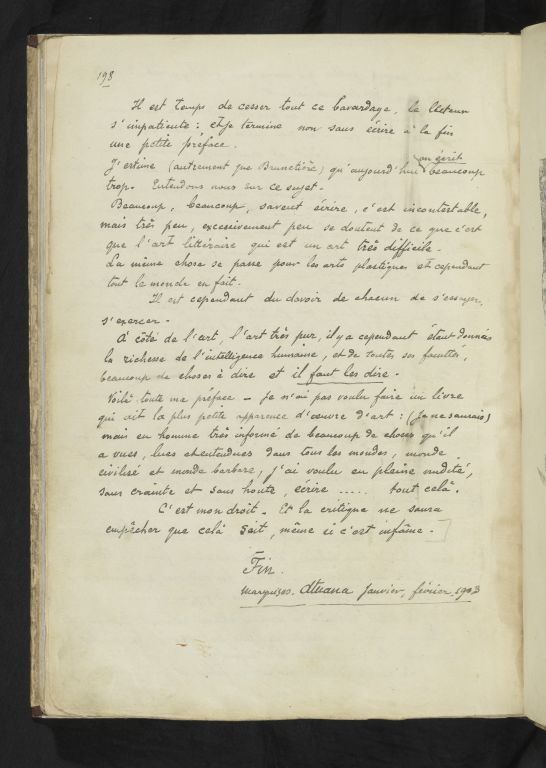 198
Il est temps de cesser tout ce bavardage, le lecteur
s'impatiente : et je termine non sans écrire à la fin
une petite préface.
J'estime (autrement que Brunetière) qu'aujourd'hui on écrit beaucoup
trop. Entendons nous sur ce sujet.
Beaucoup, beaucoup, savent écrire, c'est incontestable,
mais très peu, excessivement peu se doutent de ce que c'est
que l'art littéraire qui est un art très difficile.
La même chose se passe pour les arts plastiques et cependant
tout le monde en fait.
Il est cependant du devoir de chacun de s'essayer,
s'exercer.
À côté de l'art, l'art très pur, il y a cependant étant données
la richesse de l'intelligence humaine, et de toutes ses facultés,
beaucoup de choses à dire et il faut les dire.
Voilà toute ma préface - je n'ai pas voulu faire un livre
qui ait la plus petite apparence d'œuvre d'art : (je ne saurais)
mais en homme très informé de beaucoup de choses qu'il
a vues, lues et entendues dans tous les mondes, monde
civilisé et monde barbare, j'ai voulu en pleine nudité,
sans crainte et sans honte, écrire ..... tout celà.
C'est mon droit. Et la critique ne saura
empêcher que celà soit, même si c'est infâme.
Fin.
Marquises. Atuana Janvier, février 1903